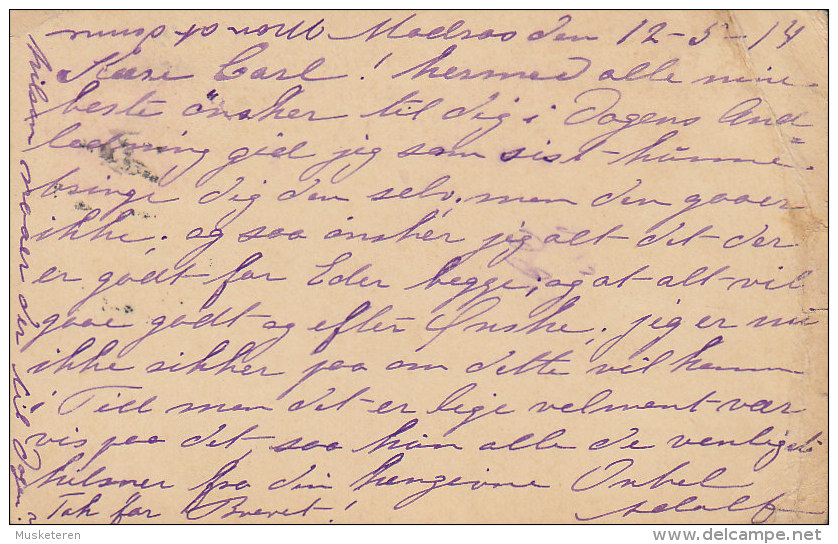 Madras den 12-5-14
Kære Carl! hermed alle mine
beste önsker til dig i Dagens And
ledning gid jeg som sist kunne
bringe dig den selv, men den gaaer
ikke, og saa önsker jeg alt det der
er godt for Eder begge, og at alt vil
gaae godt og efter Ønske, jeg er nu
ikke sikker paa om dette vil komm
i Tid men det er lige velment vær
vis paa det, saa kun alle de venligste
hilsner fra din hengivne Onkel
Adolf
Tak for Brevet!
hilsen naaer der til Dagen?
Musketeren
delcampe.net